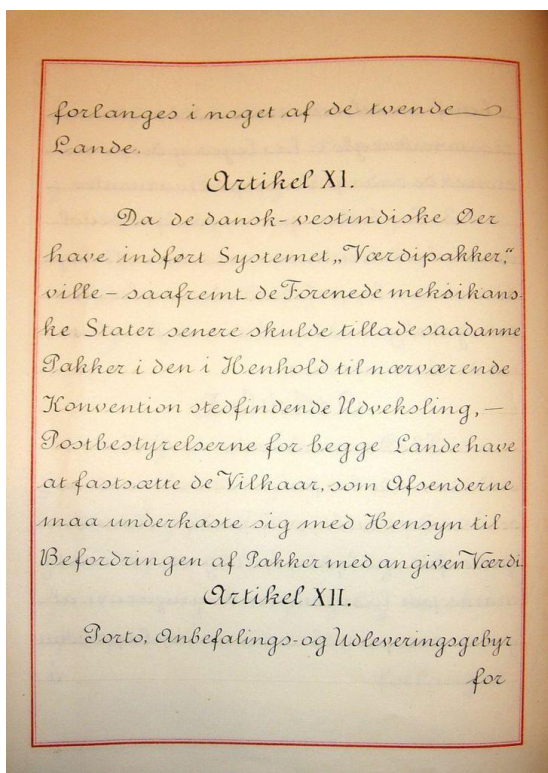 forlanges i noget af de tvende
Lande.
Artikel XI.
Da de dansk-vestindiske Øer
have indført Systemet „Værdipakker,“
ville – saafremt de Forenede meksikans-
ke Stater senere skulde tillade saadanne
Pakker i den i Henhold til nærværende
Konvention stedfindende Udveksling, –
Postbestyrelserne for begge Lande have
at fastsætte de Vilkaar, som Afsenderne
maa underkaste sig med Hensyn til
Befordringen af Pakker med angiven Værdi.
Artikel XII.
Porto, Anbefalings- og Udleveringsgebyr
for